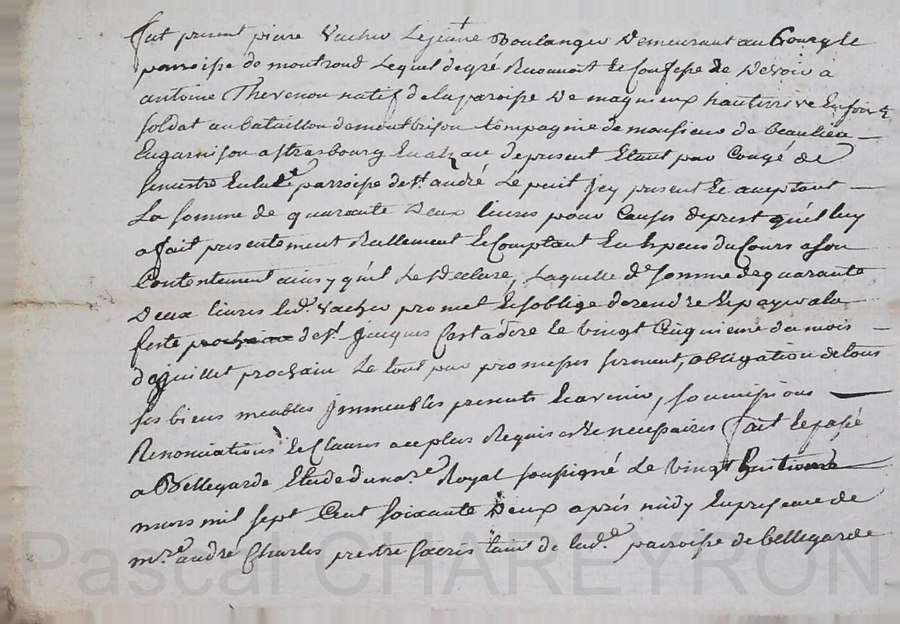 fut present pierre Vacher Lejeune Boulanger Demeurant au Bourg &
parroisse de montrond Lequel degré Reconnoit & confesse De Devoir a
antoine Thevenon natif de la paroisse De magnieux hauterive En forez
soldat au bataillon de montbrison Compagnie de monsieur de Beaulieu
En garnison a strasbourg En alzace de present Etant par Congé de
semestre En lad.e parroisse de st andré Le puit Icy present & acceptant
La somme de quarante Deux livres pour Causes de prest qu'il luy
a fait presentement Réellement & Comptant En Espece du Cours a son
Contentement ainsy qu'il Le Déclare, Laquelle d.e somme de quarante
Deux livres led. Vacher promet & s'oblige de rendre & payer a la
feste prochaine de st. Jacques C'est adire le vingt Cinquieme du mois
de juillet prochain Le tout par promesses serment, obligation de tous
ses biens meubles Immeubles presents & avenir, soumissions
Renonciations & Clauses a ce plus Requises & necessaires fait & passé
a Bellegarde Etude du no.re Royal soussigné Le vingt huitieme
mars mil sept Cent soixante Deux après midy En presence de
m.re andré Charles prestre sacristain de lad.e parroisse de bellegarde
Pascal CHAREYRON